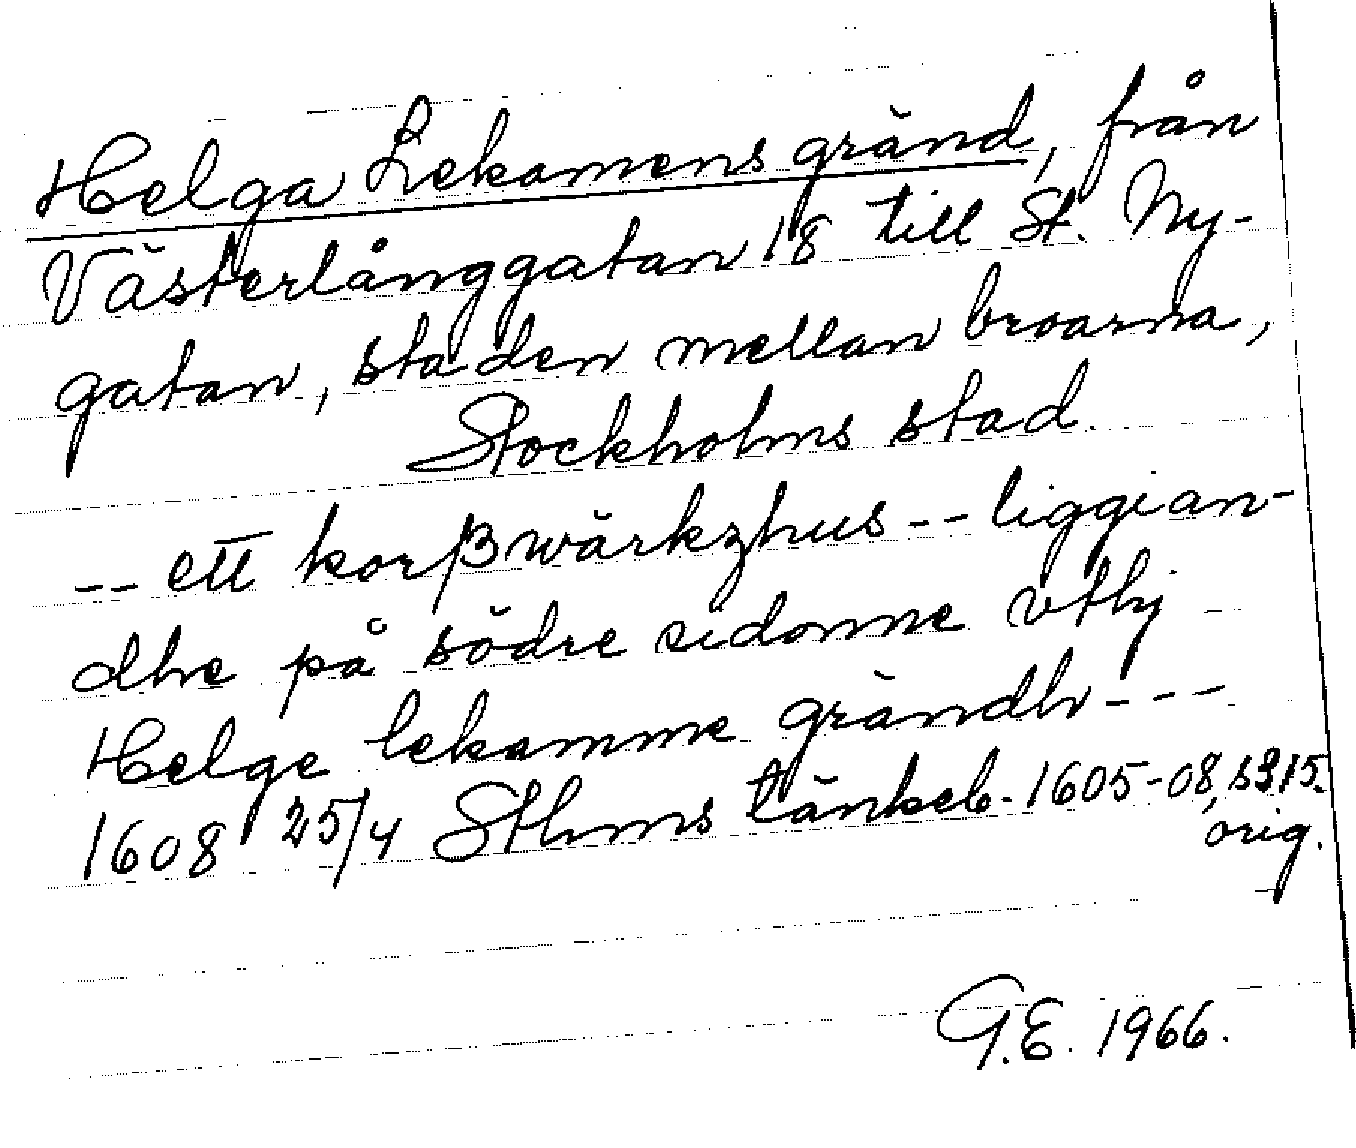 Helga Lekamens gränd, från
Västerlånggatan 18 till St. Ny-
gatan, staden mellan broarna,
Stockholms stad.
-- ett korßwärkzhus -- liggian-
dhe på södre sidonne vthj
Helge lekamme grändh ---
1608 25/4 Sthms tänkeb. 1605-08, s 315.
orig.
G.E. 1966.